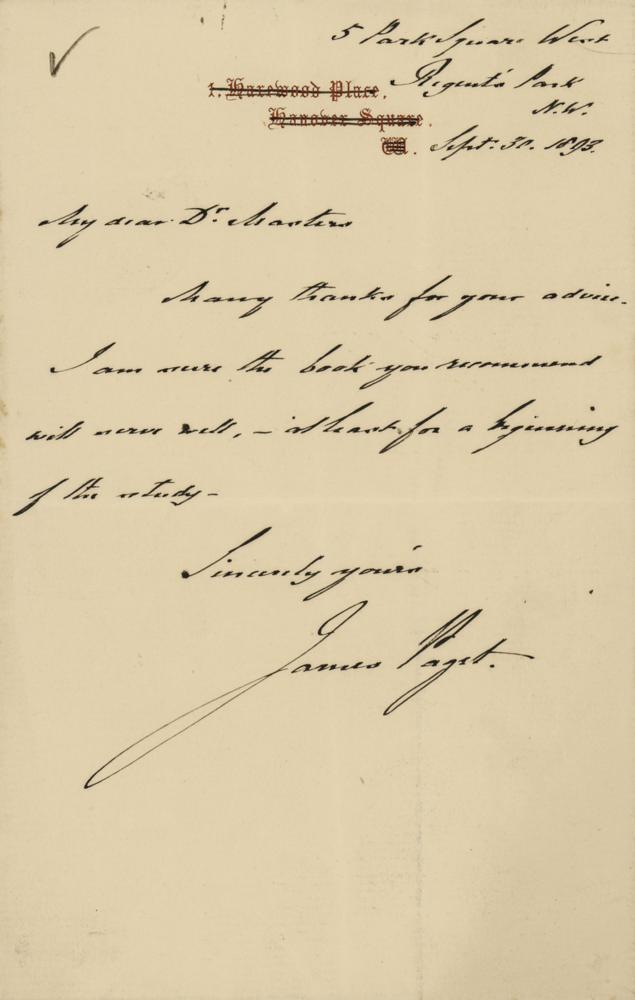 5 Park Square West
1. Harewood Place, Regent's Park
Hanover Square. N.W.
W. Sept. 30. 1893.
My dear Dr Masters
Many thanks for your advice.
I am sure the book you recommend
will serve well, – at least for a beginning
of the study –
Sincerely your's
James Paget.